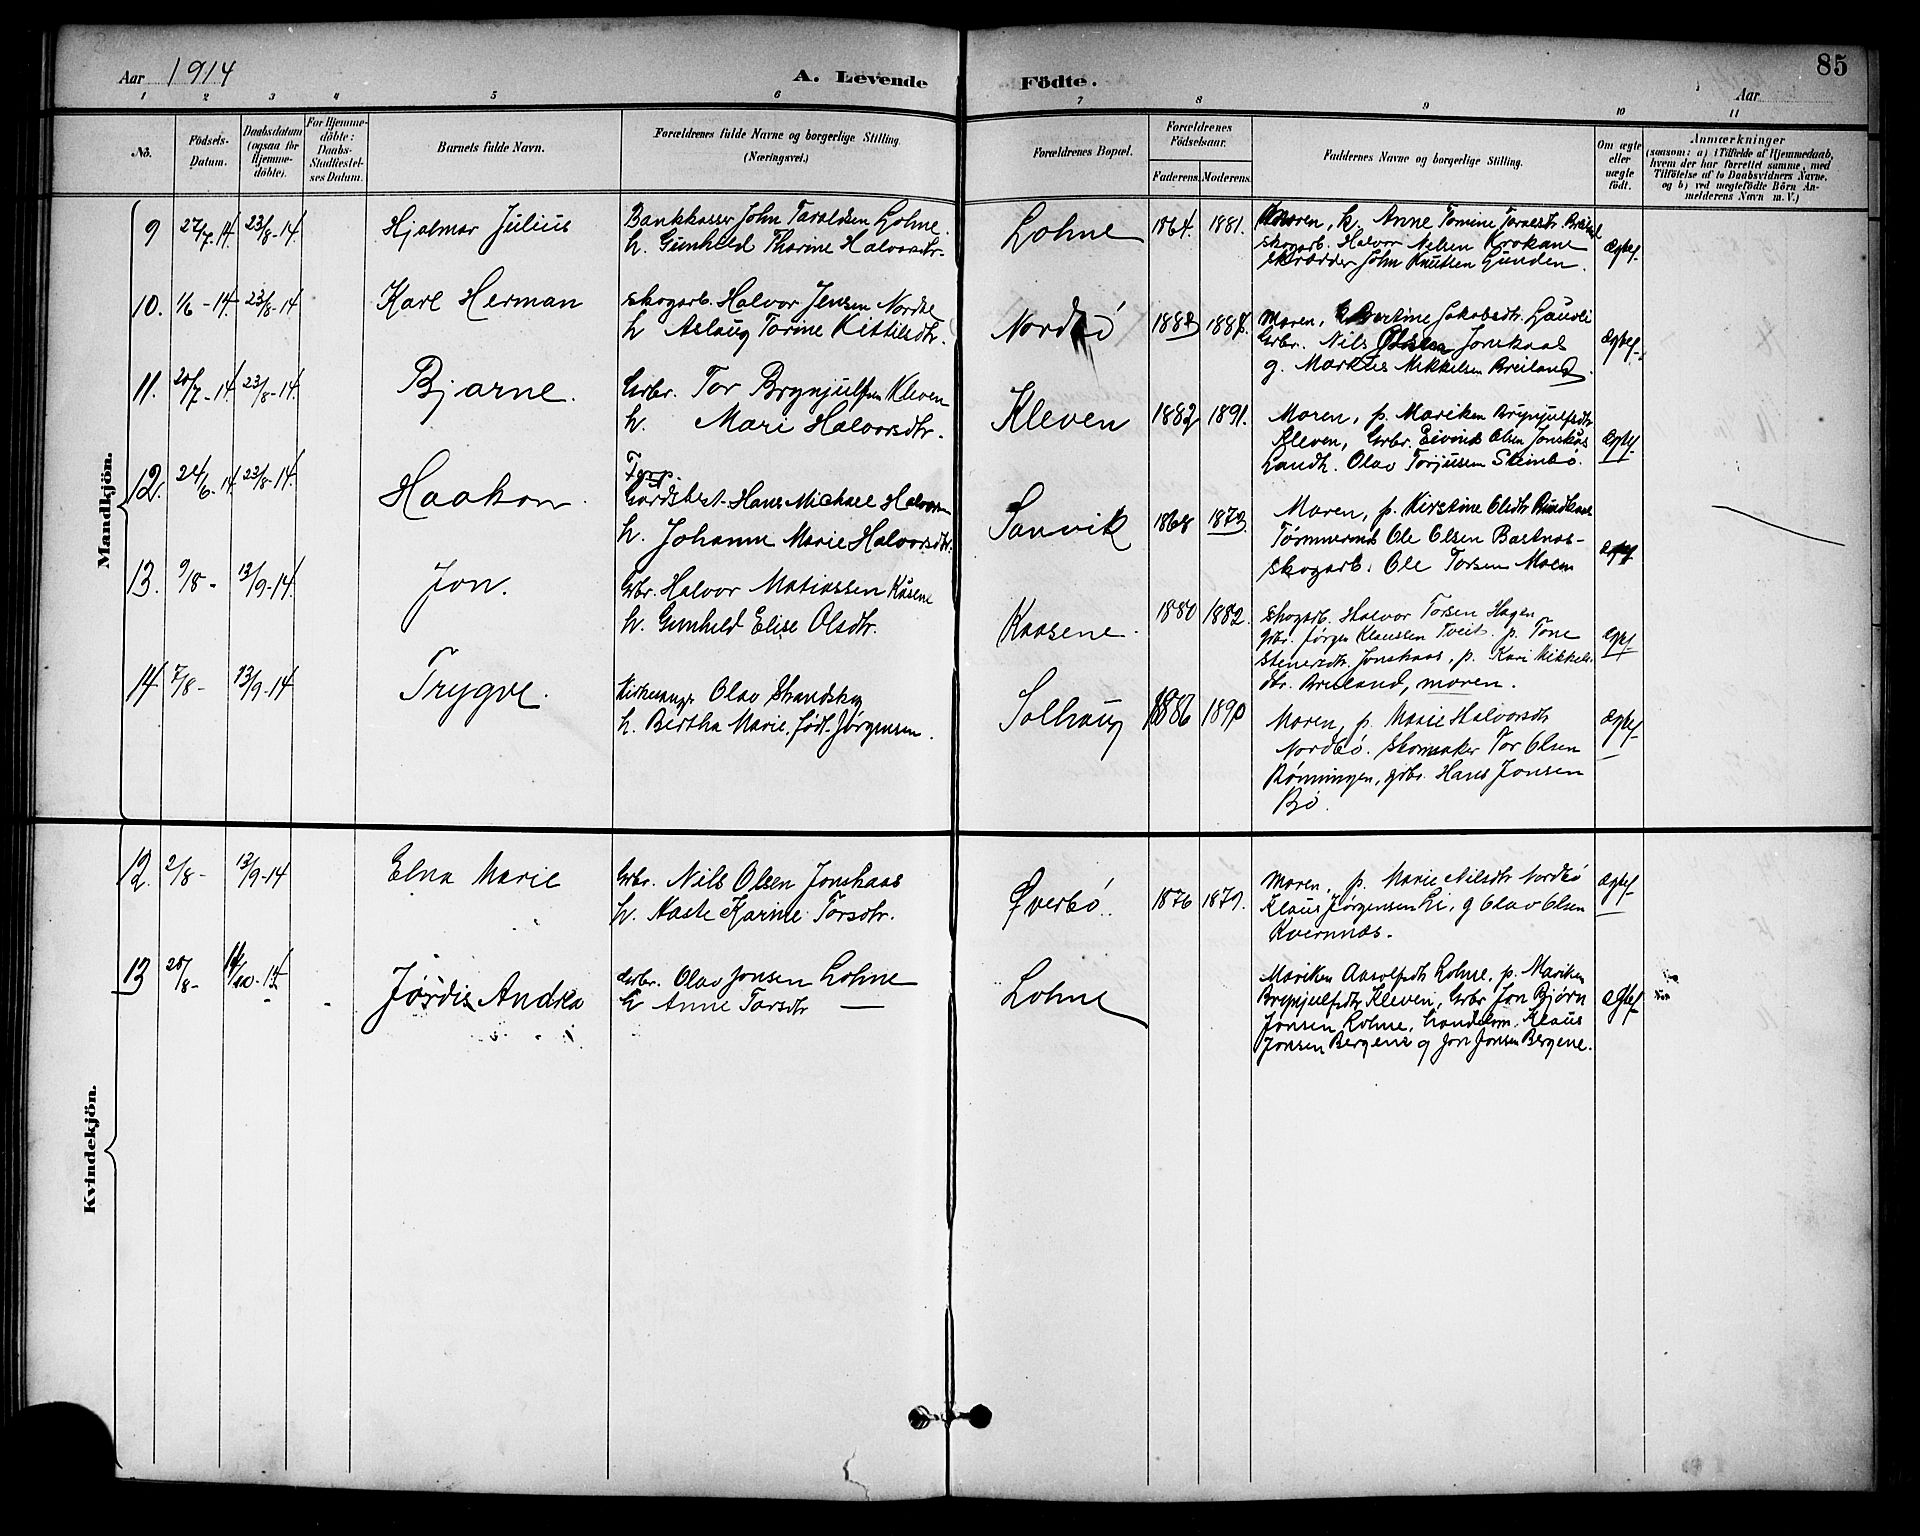 Aar 1914
A. Levende Födte.
85
Aar
1 2 3 4 5 6 7 8 9 10 11
Nö.
Födsels-Datum.
Daabsdatum (ogsaa for Hjemme-döbte).
For Hjemme-döbte: Daabs-Stadfæstel-ses Datum.
Barnets fulde Navn.
Forældrenes fulde Navne og borgerlige Stilling. (Næringsvei.)
Forældrenes Bopæl.
Forældrenes Födselsaar.
Faderens. Moderens.
Faddernes Navne og borgerlige Stilling.
Om ægte eller uægte födt.
Anmærkninger
(saasom: a) i Tilfælde af Hjemmedaab, hvem der har forrettet samme, med Tilföielse af to Daabsvidners Navne, og b) ved uægtefödte Börn An-melderens Navn m. V.)
Mandkjön.
9 27/7-14. 23/8-14. Hjalmar Julius
Bankkasser John Taraldsen Lohne
h. Gunhild Tharine Halvorsdtr.
Lohne 1864. 1881.
Moren, p. Anne Tomine Taraldsdtr
skogarb. Halvor Nilsen Krokane
skrædder John Knutsen Gunden.
ægtef.
10. 1/6-14. 23/8-14 Karl Herman
skogarb. Halvor Jensen Nordbø
h Aslaug Torine Kittilsdtr.
Nordbø 1882 1887.
Moren, Jakobsdtr. Ljauli
Grbr. Nils Olsen Jonskaas
g. Markus Mikkelsen Breiland
ægtef.
11. 20/7-14. 23/8-14. Bjarne.
Grbr. Tor Brynjulfsen Kleven
h. Mari Halvorsdtr.
Kleven 1882 1891.
Moren, p. Mariken Brynjulfsdtr
Kleven, Grbr. Eivind Olsen Jonskås
Landh. Olav Torjusen Steinbø.
ægtef.
12. 24/6-14. 23/8-14. Haakon.
Gardsbest. Hans Michael Halvorsen
h. Johanne Marie Halvorsdtr.
Sanvik 1868 1873.
Moren, p. Kirstine Olsdtr
Tømmermd Ole Olsen Bastnas-
skogarb. Ole Torsen Moen
ægtef
13. 9/8- 13/9-14. Jon.
Grbr. Halvor Matiassen Kåsene
h. Gunhild Elise Olsdtr.
Kaasene. 1880 1882.
Skogarb. Halvor Torsen Hagen
grbr. Jørgen Klaussen Tveit. p. Tone
Stenersdtr. Jonskaas, p. Kari Mikkels-
dtr. Breiland, moren.
ægtef
14 7/8- 13/9-14 Trygve.
Kirkesanger Olav Strandskog
h. Bertha Marie, født Jørgensen.
Solhaug 1886 1890
Moren, p. Marie Halvorsdtr
Nordbø. Skomaker Tor Olsen
Rønningen, grbr. Hans Jonsen
Bø.
ægtef
Kvindekjön.
12. 2/8- 13/9-14 Elna Marie
Grbr. Nils Olsen Jonskaas
h. Aaste Karine Torsdtr.
Øverbø. 1876 1879.
Moren, p. Marie Nilsdtr Nordbø
Klaus Jørgensen Li, g Olav Olsen
Kvernnæs.
ægtef
13 20/8- /10-14 Jørdis Andrea
Grbr. Olav Jonsen Lohne
h Anne Tarsdtr —
Lohne
Mariken Aasolfsdtr Lohne, p. Mariken
Brynjulfsdtr Kleven, Grbr Jon Bjørn
Jonsen Lohne, handelsm. Klaus
Jonsen Bergene g Jon Jonsen Bergene.
ægtef